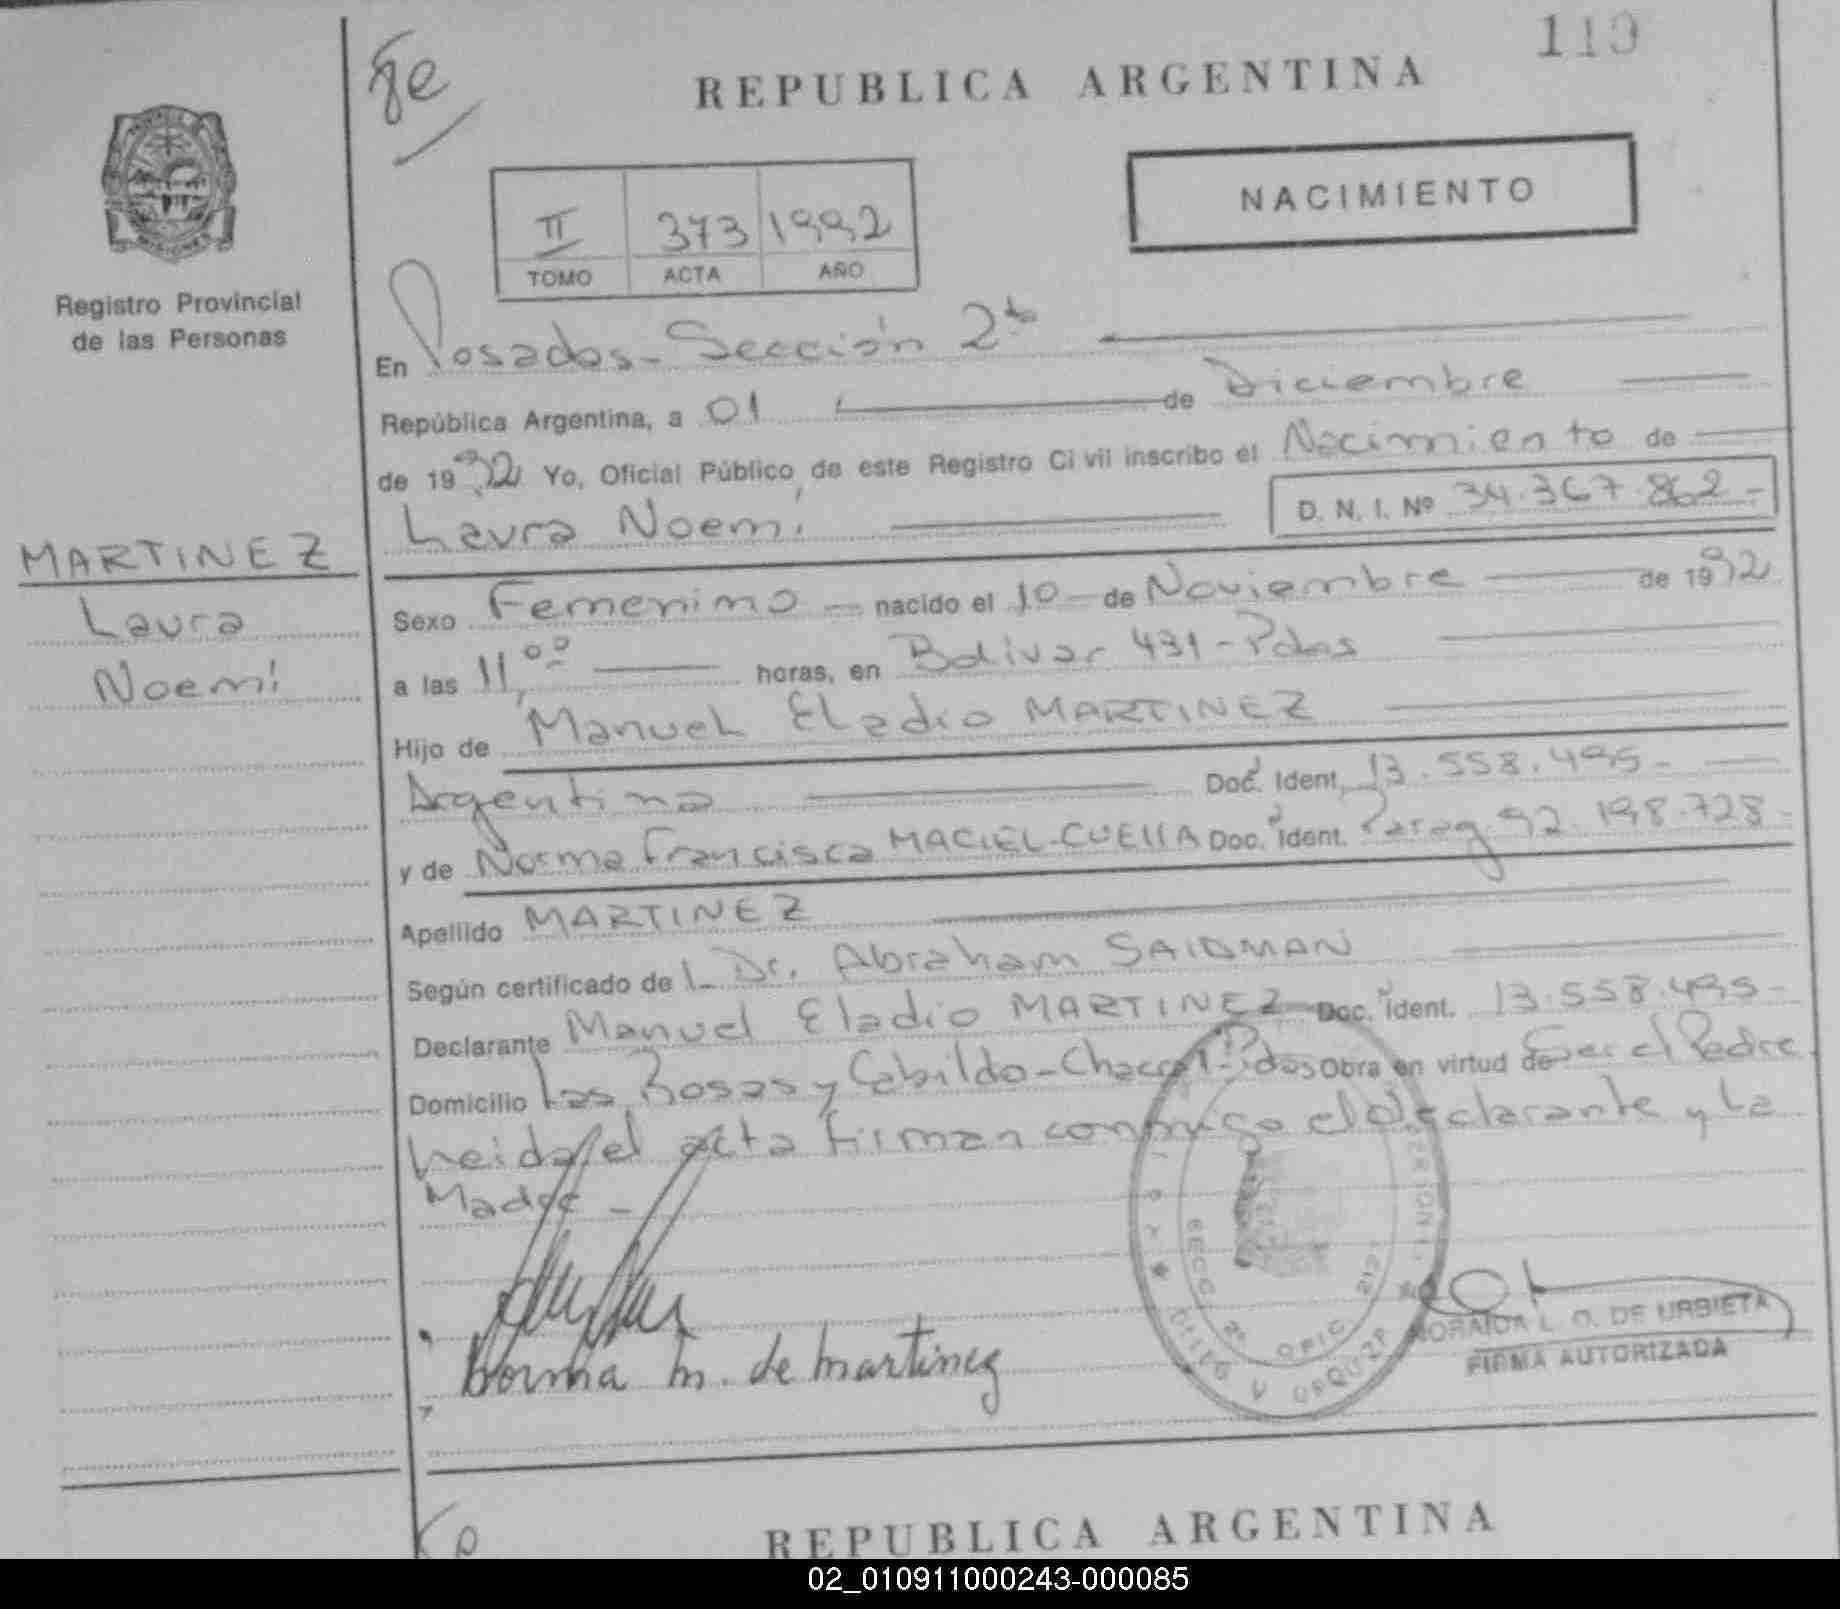 110
REPUBLICA ARGENTINA
NACIMIENTO
II 373 1992
TOMO ACTA AÑO
Registro Provincial
de las Personas
En Posadas - Sección 2da
República Argentina, a 01 de Diciembre
de 1992 Yo, Oficial Público, de este Registro Civil inscribo el Nacimiento de
Laura Noemí D. N. I. Nº 34.367.862-
MARTINEZ
Laura
Noemí
Sexo Femenino - nacido el 10 - de Noviembre de 1992
a las 11,00 horas, en Bolivar 431 - Pdas
Hijo de Manuel Eladio MARTINEZ
Argentino Doc. Ident. 13.558.495-
y de Norma Francisca MACIEL-CUELLA Doc. Ident. Parag 92.198.728-
Apellido MARTINEZ
Según certificado de L Dr. Abraham SAIDMAN
Declarante Manuel Eladio MARTINEZ Doc. Ident. 13.558.495-
Domicilio Las Rosas y Cabildo - Chacra - Pdas Obra en virtud de Ser el Padre
Leida el acta firman conmigo el Declarante y La
Madre -
Norma M. de Martinez
SECC. 2ª OFIC. 212
L. O. DE URBIETA
FIRMA AUTORIZADA
REPUBLICA ARGENTINA
02_010911000243-000085